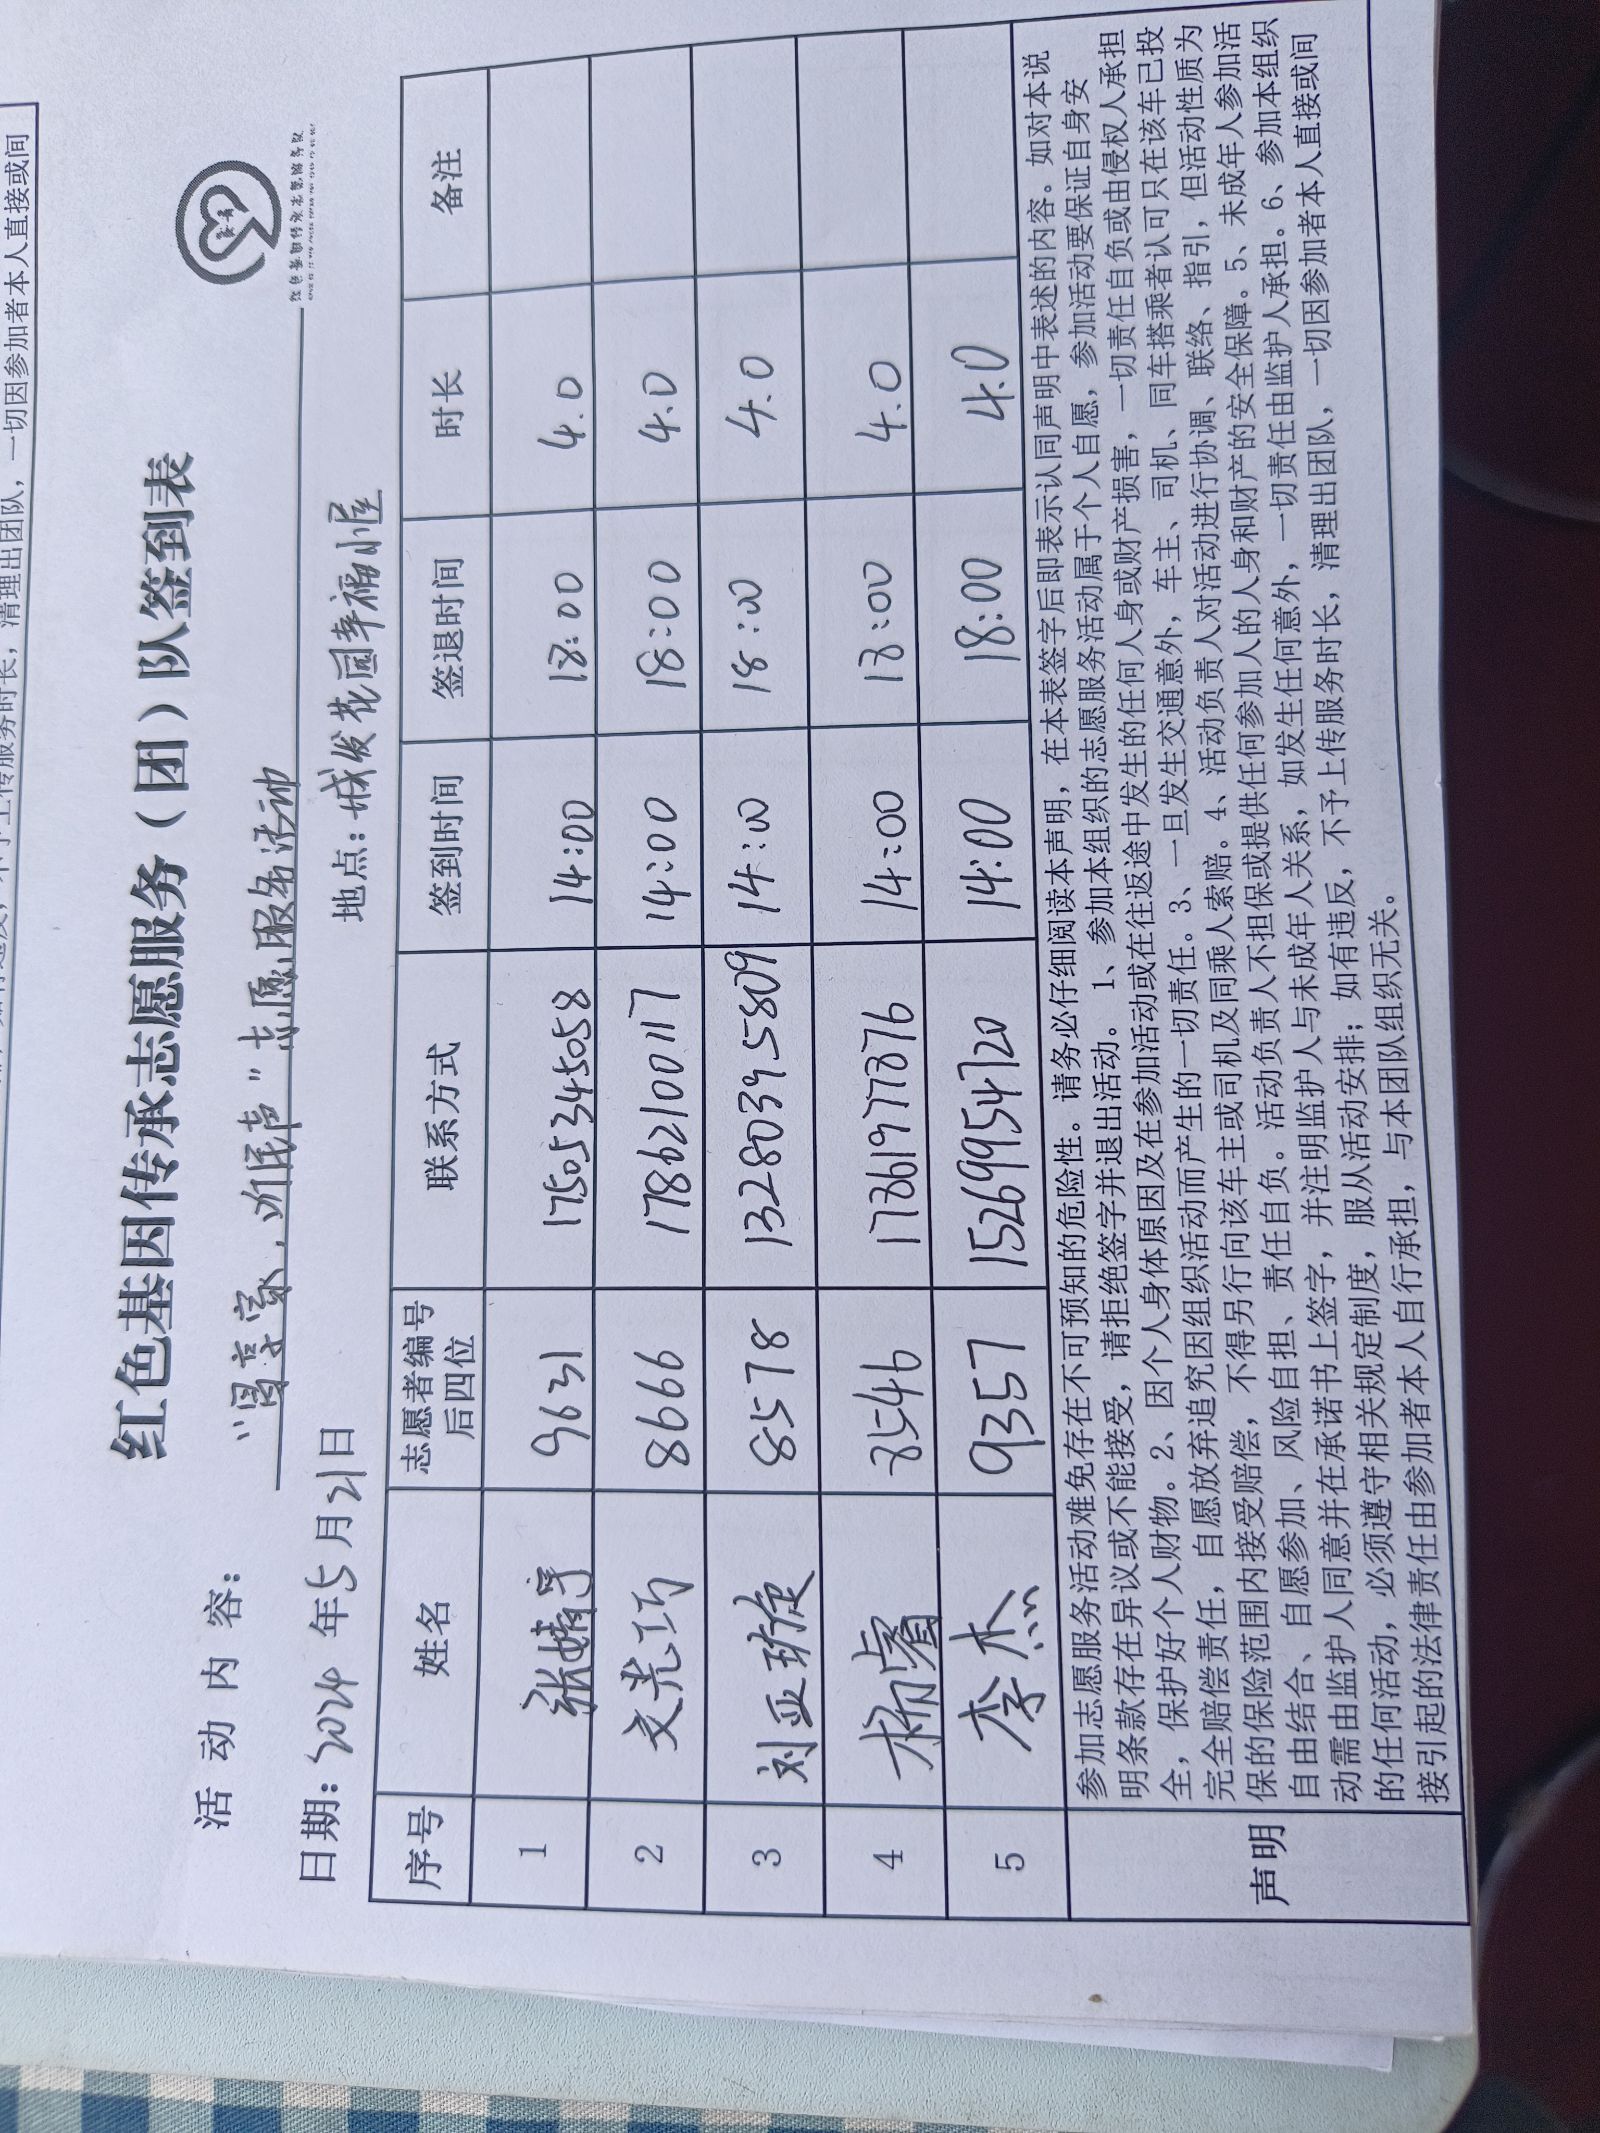 一切因参加者本人直接或间
清理出团队，
红色基因传承志愿服务（团）队签到表
活 动 内 容：
民声"志愿服务活动
日期：2024 年 5 月 21 日
地点：城发花园幸福小屋
序号 姓名 志愿者编号后四位 联系方式 签到时间 签退时间 时长 备注
1 张婧宇 9631 17505345058 14:00 18:00 4.0
2 8666 17862100117 14:00 18:00 4.0
3 刘亚璇 8578 13280395809 14:00 18:00 4.0
4 杨睿 8546 17361977376 14:00 18:00 4.0
5 李杰 9357 15269954720 14:00 18:00 4.0
声明
参加志愿服务活动难免存在不可预知的危险性。请务必仔细阅读本声明，在本表签字后即表示认同声明中表述的内容。如对本说
明条款存在异议或不能接受，请拒绝签字并退出活动。1、参加本组织的志愿服务活动属于个人自愿，参加活动要保证自身安
全，保护好个人财物。2、因个人身体原因及在参加活动或在往返途中发生的任何人身或财产损害，一切责任自负或由侵权人承担
完全赔偿责任，自愿放弃追究因组织活动而产生的一切责任。3、一旦发生交通意外，车主、司机、同车搭乘者认可只在该车已投
保的保险范围内接受赔偿，不得另行向该车主或司机及同乘人索赔。4、活动负责人对活动进行协调、联络、指引，但活动性质为
自由结合、自愿参加、风险自担、责任自负。活动负责人不担保或提供任何参加人的人身和财产的安全保障。5、未成年人参加活
动需由监护人同意并在承诺书上签字，并注明监护人与未成年人关系，如发生任何意外，一切责任由监护人承担。6、参加本组织
的任何活动，必须遵守相关规定制度，服从活动安排；如有违反，不予上传服务时长，清理出团队，一切因参加者本人直接或间
接引起的法律责任由参加者本人自行承担，与本团队组织无关。